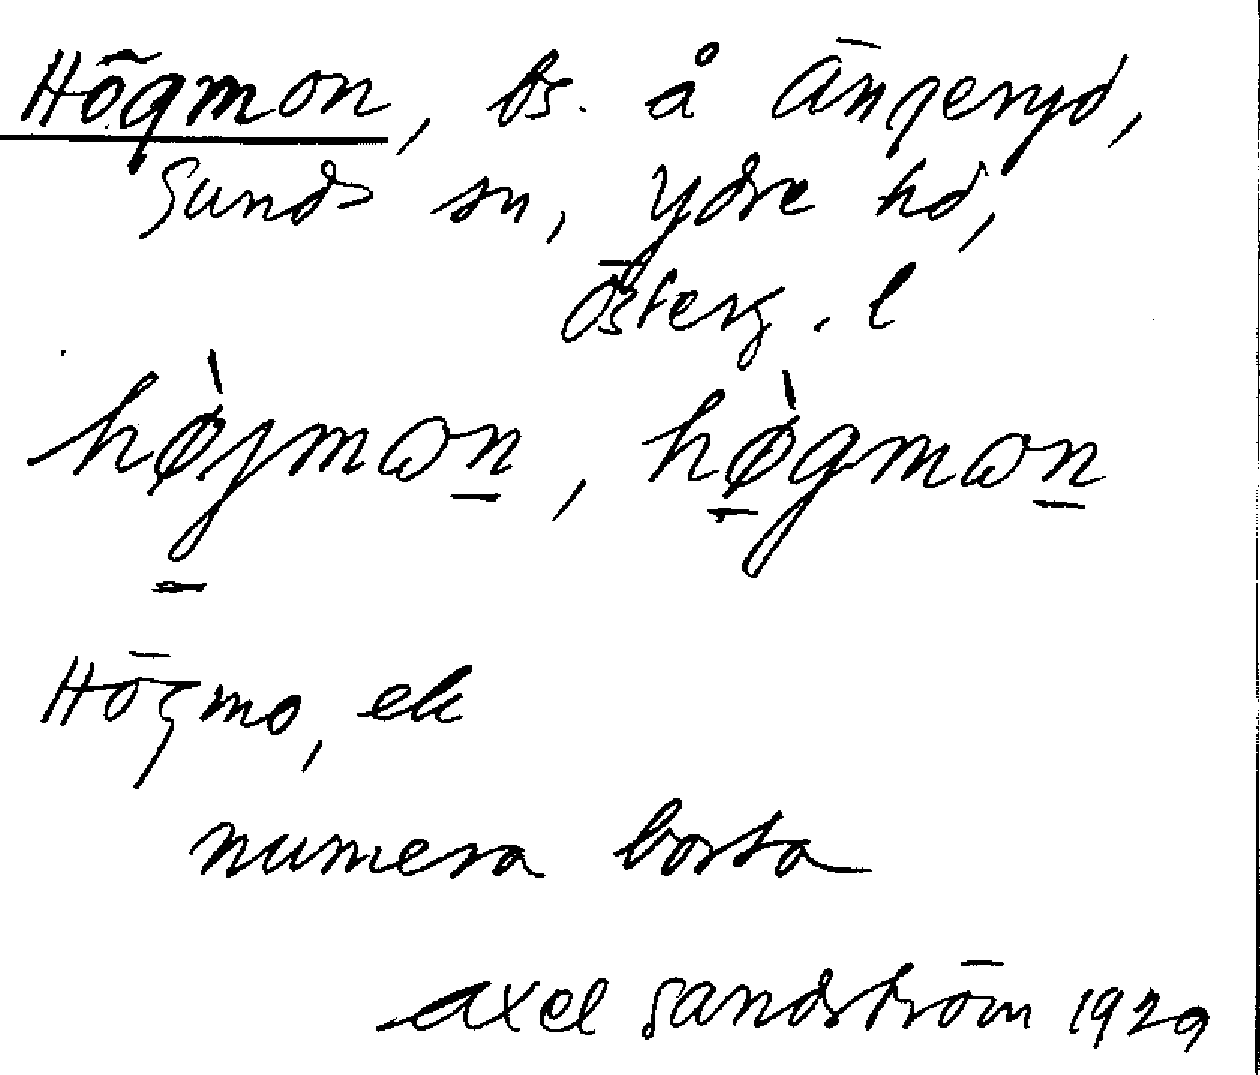 Högmon, bs. å Ängeryd,
Sunds sn, Ydre hd,
Österg. l
hø̀jmɷn, hø̀gmɷn
Högmo, ek
numera borta
Axel Sandström 1929